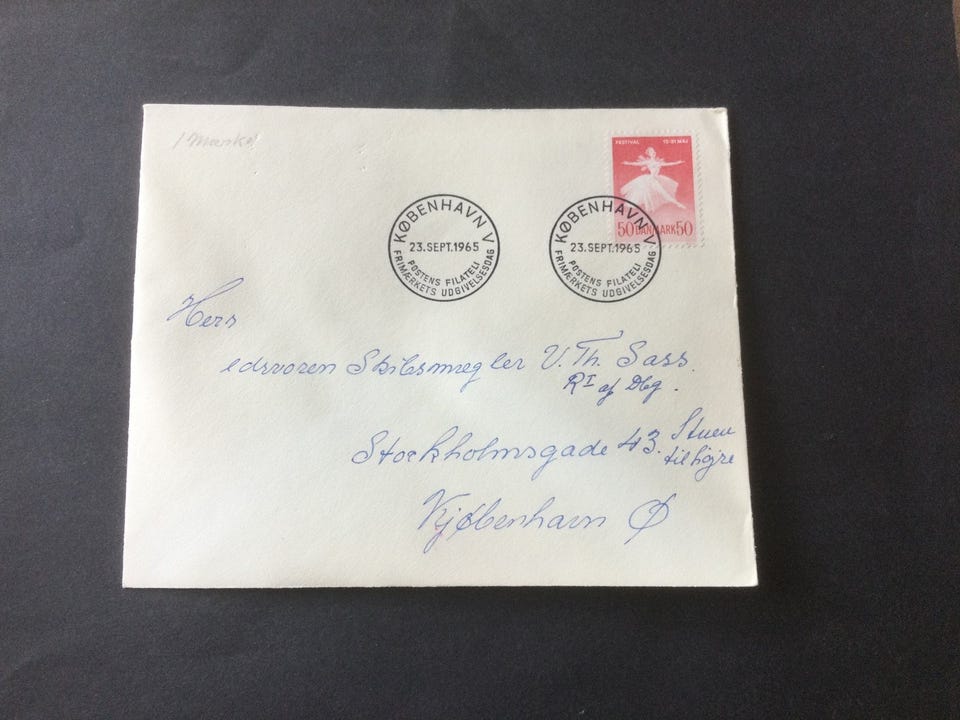 FESTIVAL 15-31 MAJ
50 DANMARK 50
KØBENHAVN V
23.SEPT.1965
POSTENS FILATELI
FRIMÆRKETS UDGIVELSESDAG
KØBENHAVN V
23.SEPT.1965
POSTENS FILATELI
FRIMÆRKETS UDGIVELSESDAG
Herr
edsvoren Skibsmægler V. Th. Sass.
RI af Dbg.
Stockholmsgade 43. Stuen
til højre
Kjøbenhavn Ø